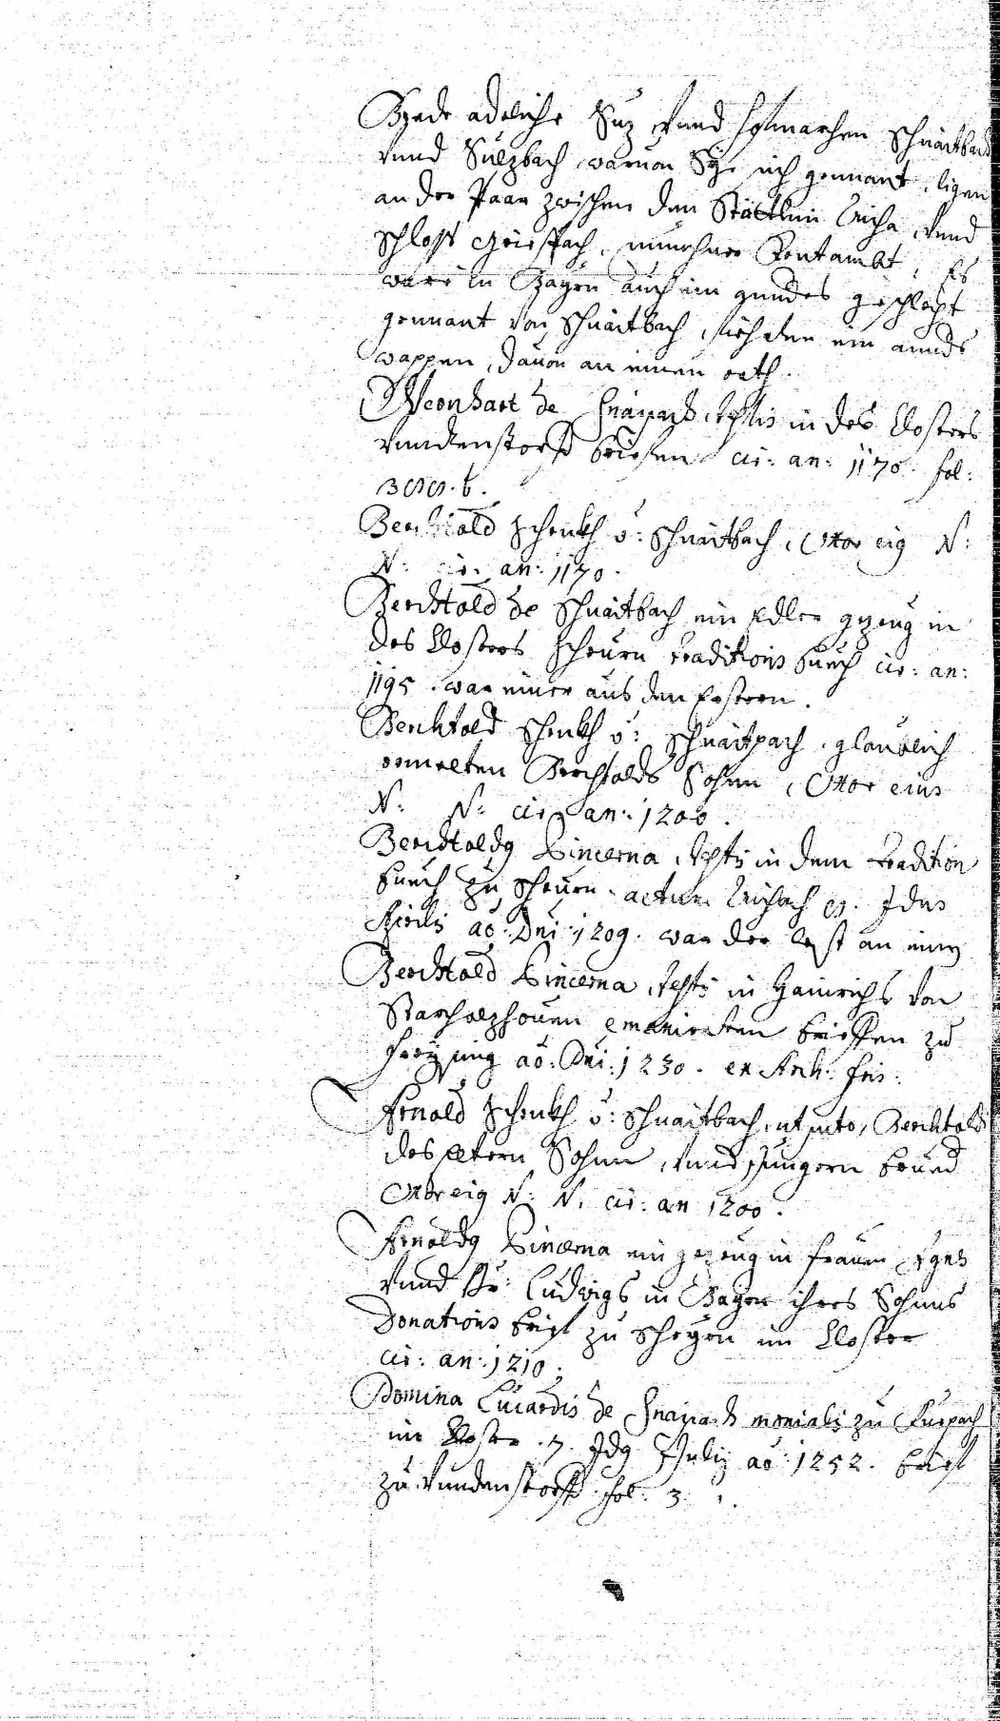 Bede adeliche Siz Vnnd Hofmarchen Schnaitbach
vnnd Sulzbach waruon Sye sich gennant, ligen
an der Paar zwischen den Stättlein Aicha, Vnnd
Schloss Griespach, münchner Rentambt, Es
ware in Bayrn auch ein annders geschlecht
gennant von Schnaitbach, fiehrten ein annds
wappen, dauon an einem orth.
Weonhart de Snaipach, testis in des Closters
Vnndenstorff briefen cir: an: 1170. fol:
Berchtold Schenkh v: Schnaitbach, Vxor eig N:
N: cir. an: 1170.
Berchtold de Schnaitbach ein Edler gezeug in
des Closters Scheurn traditions buech cir: an:
1195. war einer aus den Erstern.
Berchtold Schenkh v: Schnaitpach, glaublich
ermelten Berchtolds Sohnn, Vxor eius
N: N: cir. an: 1200.
Berchtoldg Pincerna, testis in dem tradition
buech zu Scheurn. actum Aichach Idus
Aprilis ao: Dni: 1209. war der lest an einem
Berchtold Pincerna, testis in Hainrichs von
Starcholzhouen briefen zu
Freysing ao: Dni: 1230. ex Arch: Fris:
Arnold Schenkh v: Schnaitbach, ut puto, Berchtolds
des eltern Sohnn, Vnnd Jungern brued
Vxor eig N: N. cir: an 1200.
Arnoldg Pincerna ein gezeug in frauen Agnes
Vnnd Ludwigs in Bayrn ihres Sohnns
Donations brief zu Scheyrn im Closter
cir: an: 1210.
Domina Luiardis de Snaipach monialis zu Kuepach
im Closter. 7. Idg Julij ao: 1252. brief
zu Vnndenstorff. fol: 3.